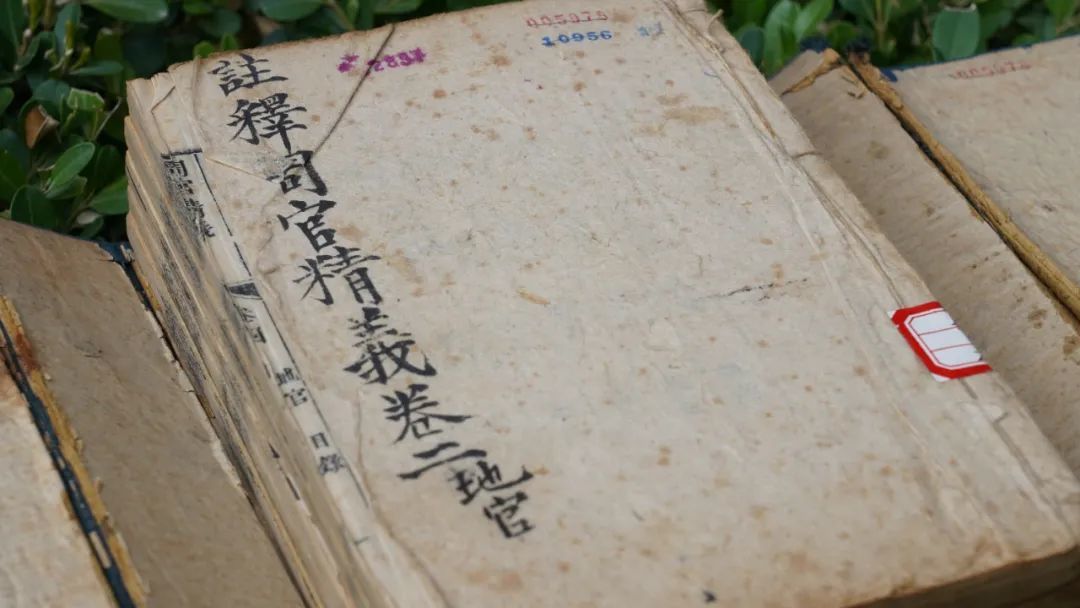 註釋周官精義卷二地官
10956
周官精義
地官 目錄